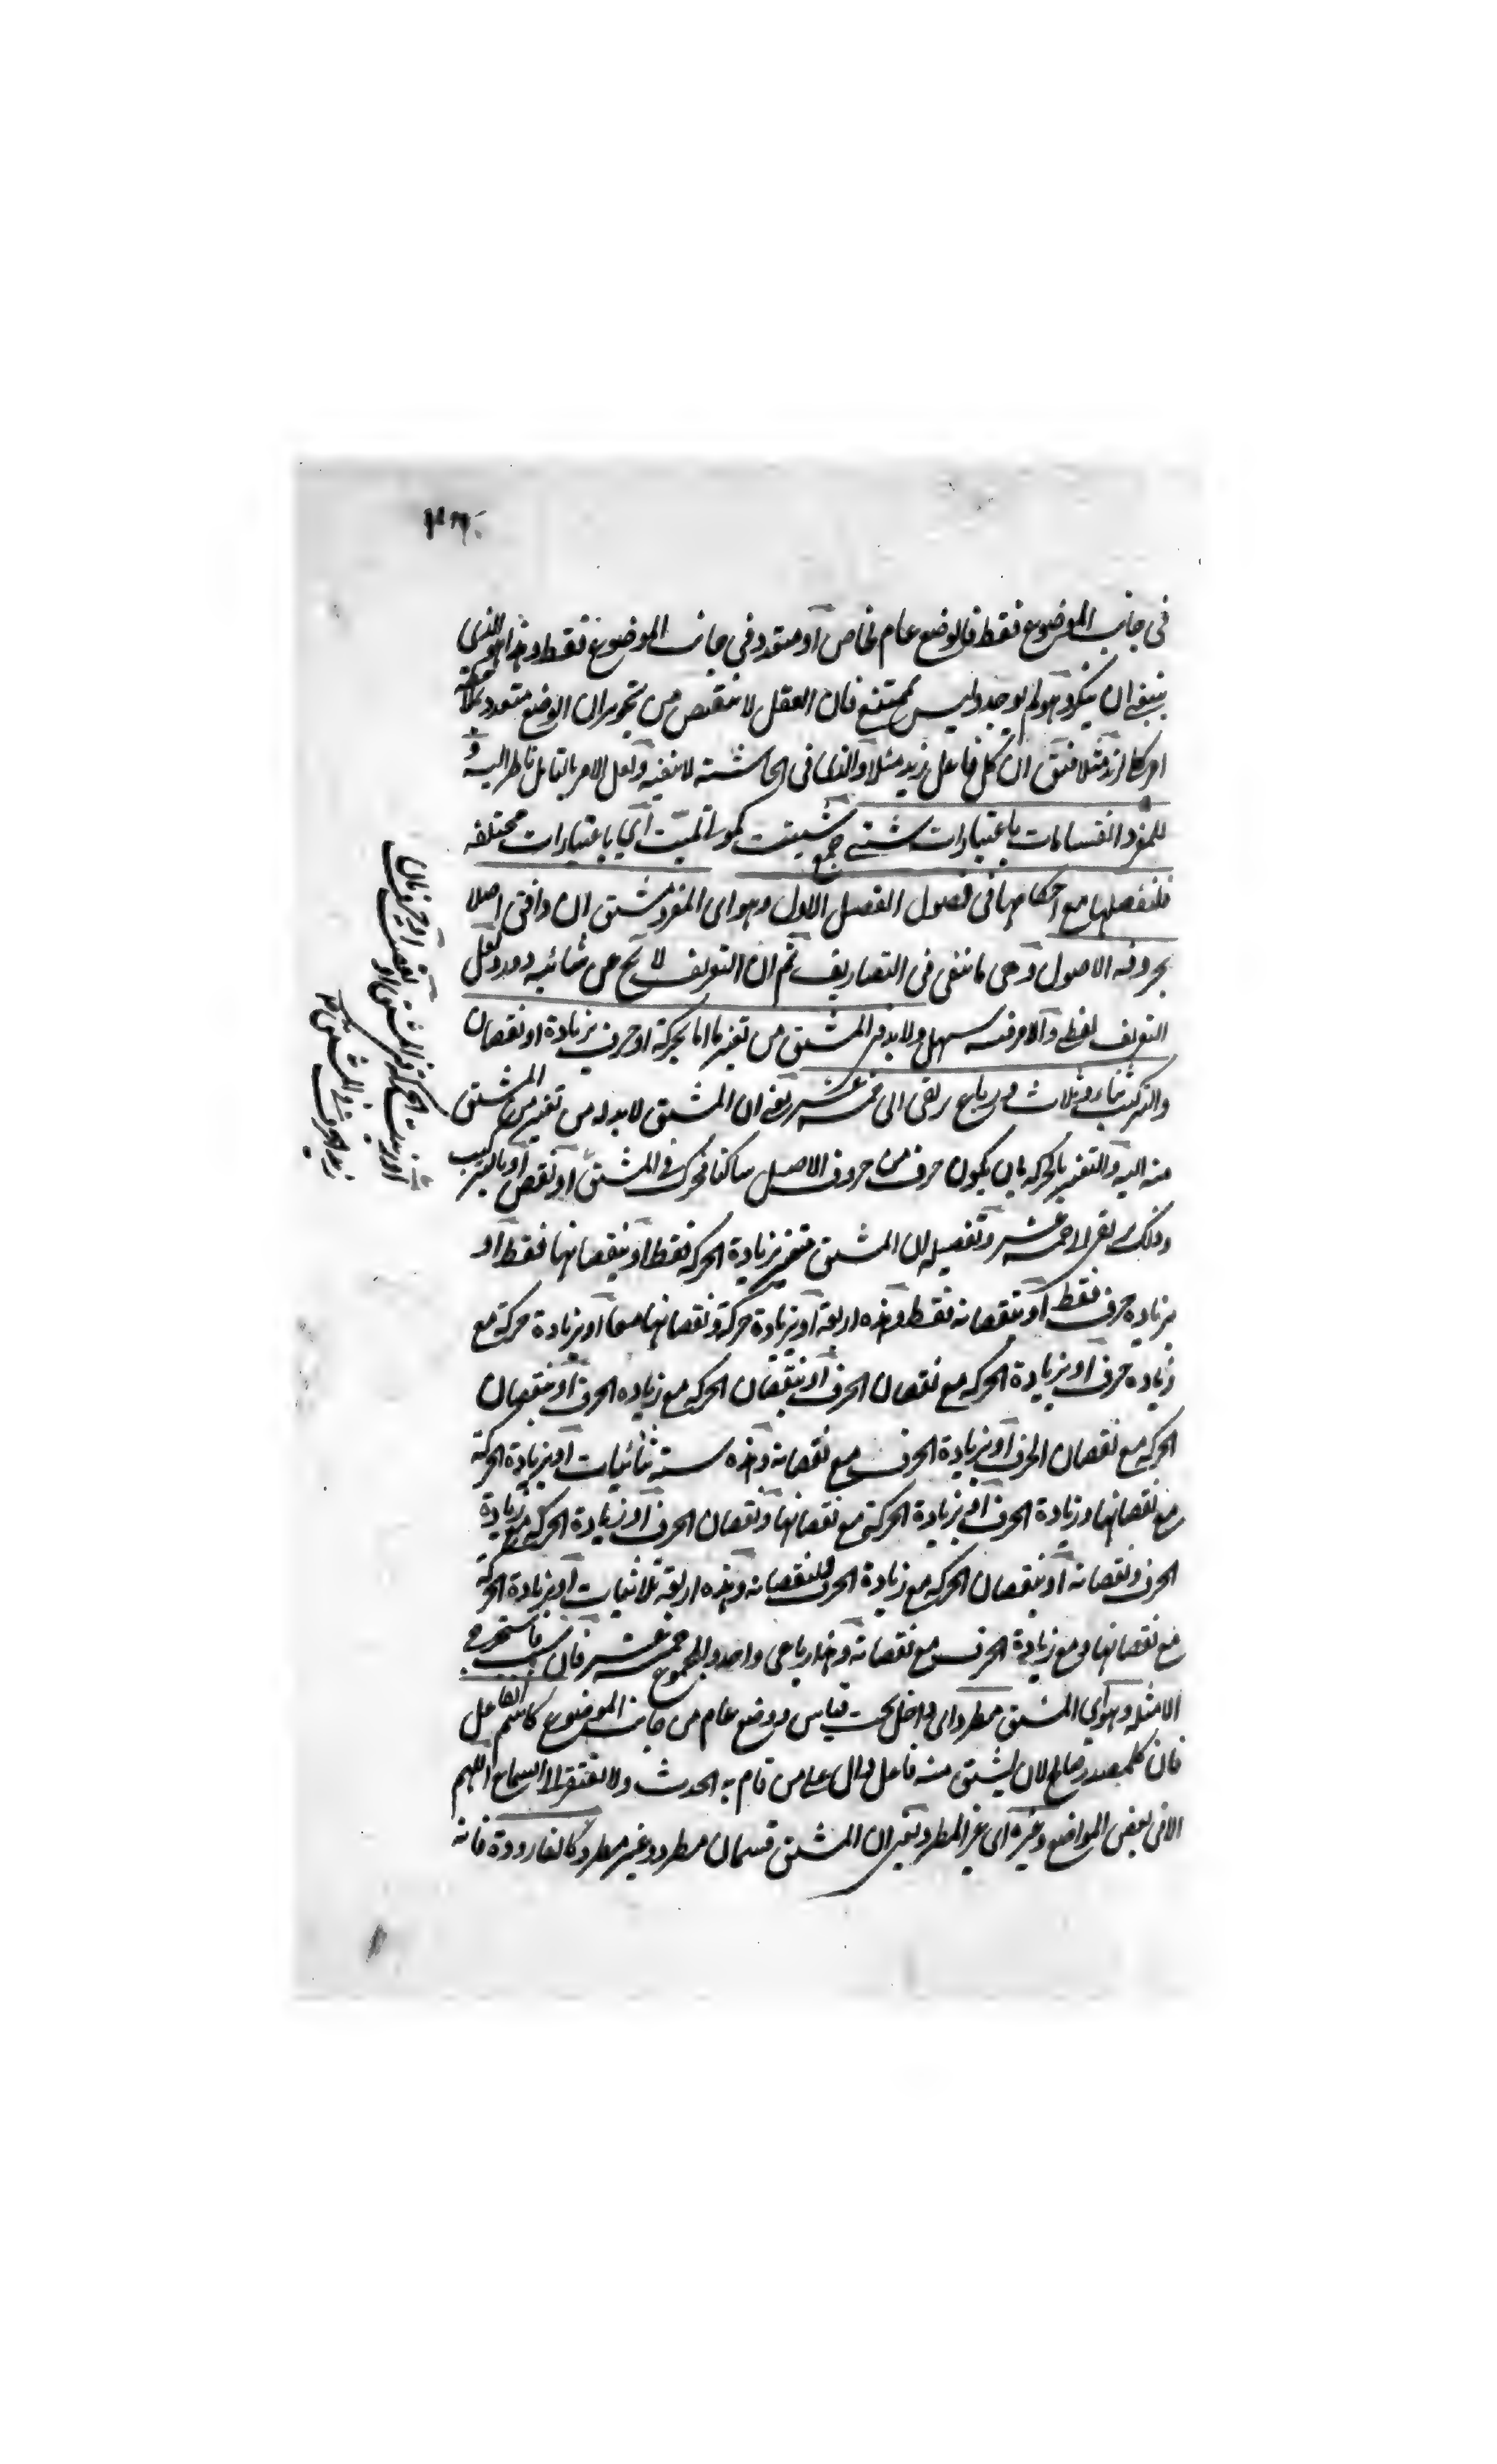 في جانب الموضوع فقط فالوضع عام لخاص أو متعدد في جانب الموضوع فقط وهذا هو الذي
ينبغي ان ينكر وهو لم يوجد وليس بممتنع فان العقل لا ينقبض من تجويز ان الوضع متعدد بملاحظة
امر كلي مثلا ان كل فاعل زيد مثلا والذي في الحاشية لا نفيه ولعل الامر بالتأمل ناظر اليه و
للمفرد انقسامات باعتبارات شتى جمع شتيت كموتى لميت اي باعتبارات مختلفه
فلنفصلها مع احكامها في فصول الفصل الاول وهو اي المفرد مشتق ان وافق اصلا
بحروفه الاصول وهي ما تبقى في التصاريف ثم ان التعريف لا يخ عن شائبه دور ولعل
التعريف لفظي والامر فيه سهل ولا بد في المشتق من تغير ما اما بحركة او حرف بزيادة او نقصان
والتركيب ثناء وثلاث ورباع يرتقي الى خمسة عشر يعني ان المشتق لا بد له من تغير من المشتق
منه اليه والتغير بالحركه بان يكون حرف من حروف الاصل ساكنا فحرك في المشتق او نقص او بالتركيب
وذلك يرتقي الى خمسة عشر وتفصيله ان المشتق متغير بزيادة الحركة فقط او بنقصانها فقط او
بزيادة حرف فقط او بنقصانه فقط وهذه اربعة او بزيادة حركة ونقصانها معا او بزيادة حركة مع
زيادة حرف او بزيادة الحركه مع نقصان الحرف او بنقصان الحركه مع زياده الحرف او بنقصان
الحركه مع نقصان الحرف او بزيادة الحرف مع نقصانه وهذه ستة ثنائيات او بزيادة الحركة
مع نقصانها وزيادة الحرف او بزيادة الحركة مع نقصانها ونقصان الحرف او زيادة الحركه مع زيادة
الحرف ونقصانه او بنقصان الحركه مع زيادة الحرف ونقصانه وهذه اربعة ثلاثيات او بزيادة الحركة
مع نقصانها ومع زيادة الحرف مع نقصانه وهذا رباعي واحد والمجموع خمسة عشر فاستخرج
الامثله وهو اي المشتق مطرد اي داخل تحت قياس ووضع عام من جانب الموضوع كاسم الفاعل
فان كل مصدر صالح لان يشتق منه فاعل دال على من قام به الحدث ولا يفتقر الى السماع اللهم
الا في بعض المواضع وغيره اي غير المطرد يعني ان المشتق قسمان مطرد وغير مطرد كالقارورة فانه